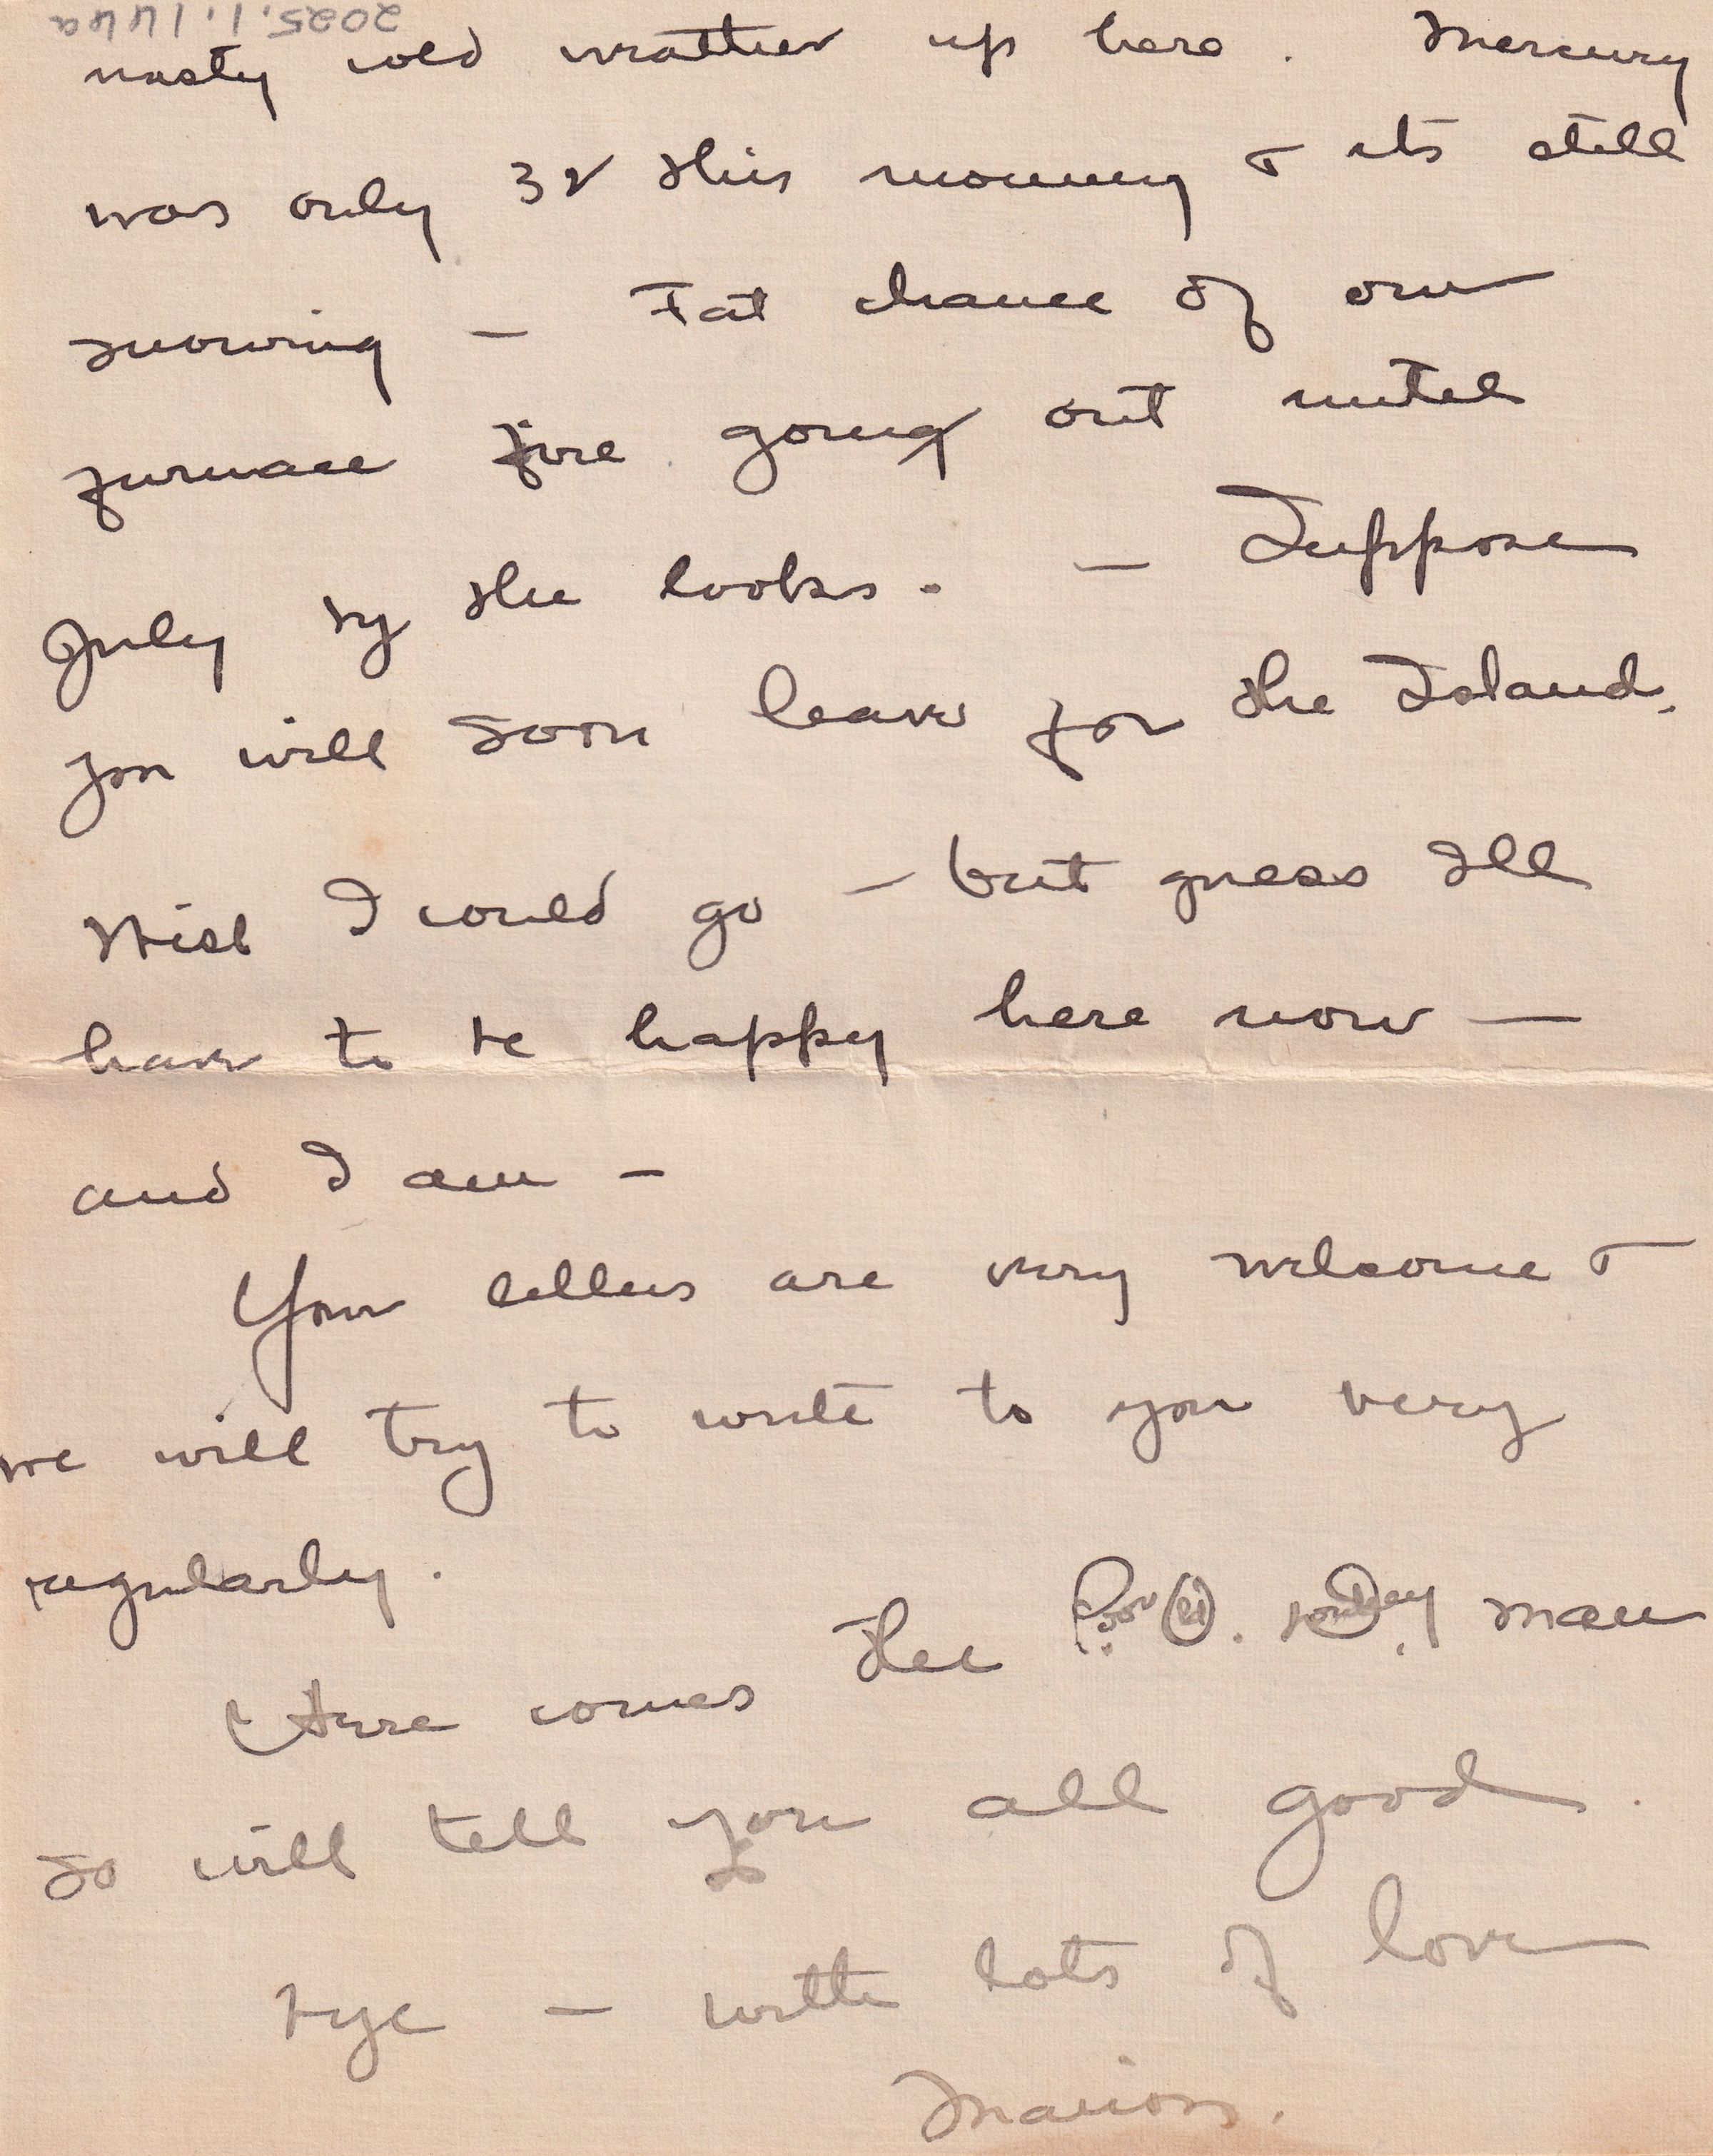 2025.1.144a
nasty cold weather up here. Mercury
was only 32 this morning & its still
snowing - Fat chance of our
furnace fire going out until
July by the looks. - Suppose
you will soon leave for the Island.
Wish I could go - but guess Ill
have to be happy here now -
and I am -
Your letters are very welcome &
we will try to write to you very
regularly.
Here comes the man
so will tell you all good
bye - with lots of love
Marion.